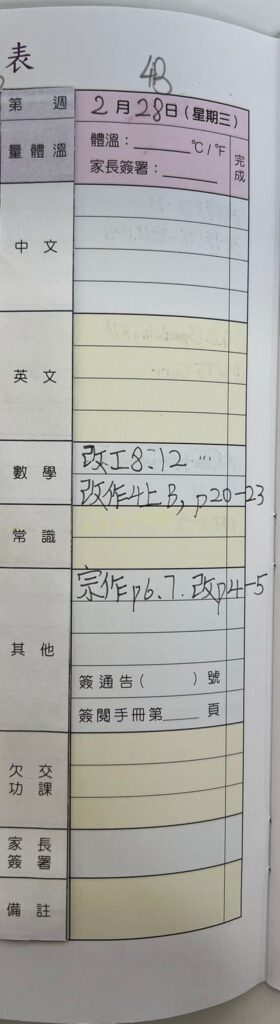 表
4B
第 週 2月28日(星期三)
量體溫 體溫:______℃/℉ 完成
家長簽署:______
中文
英文
數學 改工8:12 …
改作4上B, p20-23
常識
其他 宗作p6.7.改p4-5
簽通告( )號
簽閱手冊第____頁
欠交功課
家長簽署
備註